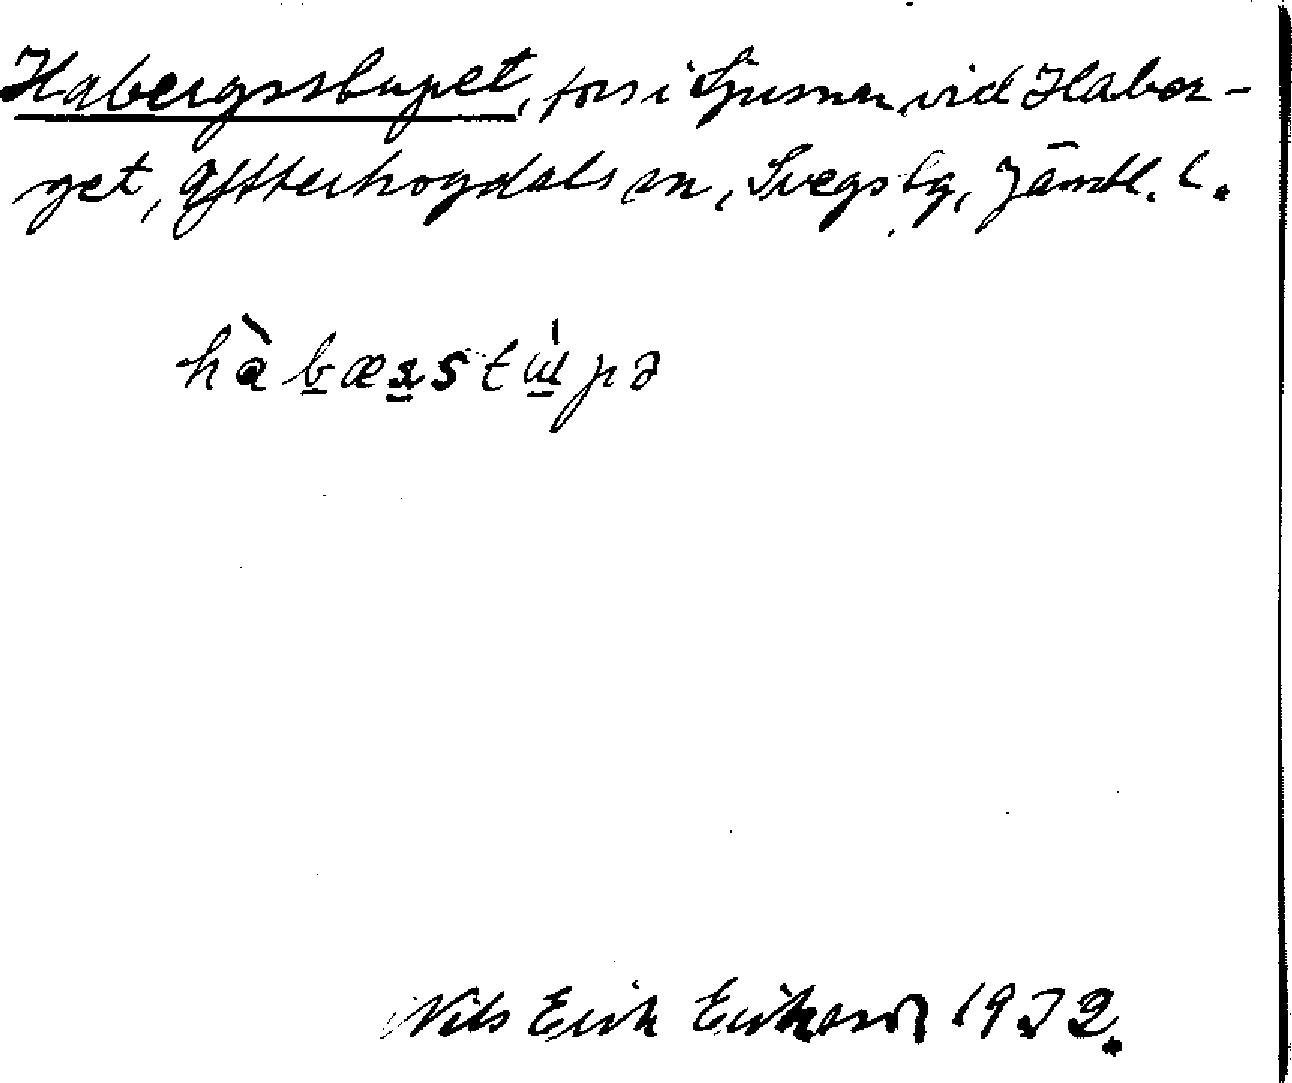 Habergsstupet, fors i Ljusnan vid Haber-
get, Ytterhogdals sn, Svegs tg, Jämtl. l.
hàbæɹstɯ́pə
Nils Erik Erikson 1932.